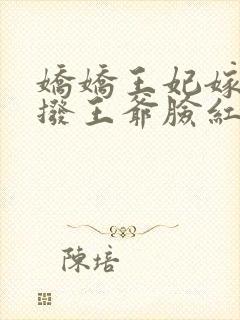 嬌嬌王妃嫁
撥王爺臉紅
陳培